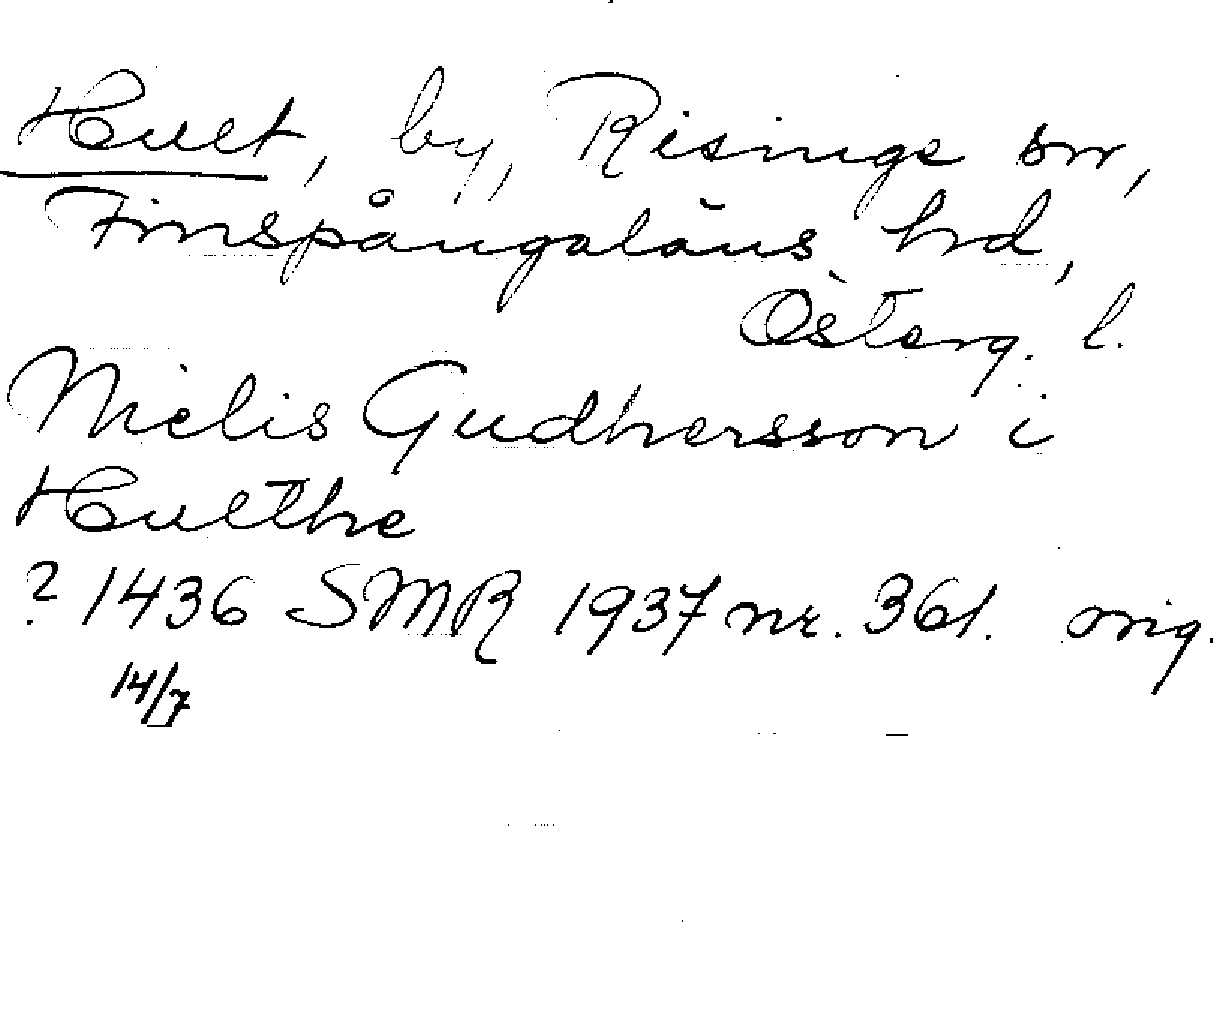 Hult, by, Risinge sn,
Finspångaläns hrd,
Österg. l.
Nielis Gudhersson i
Hulthe
? 1436 SMR 1937 nr. 361. orig.
14/7